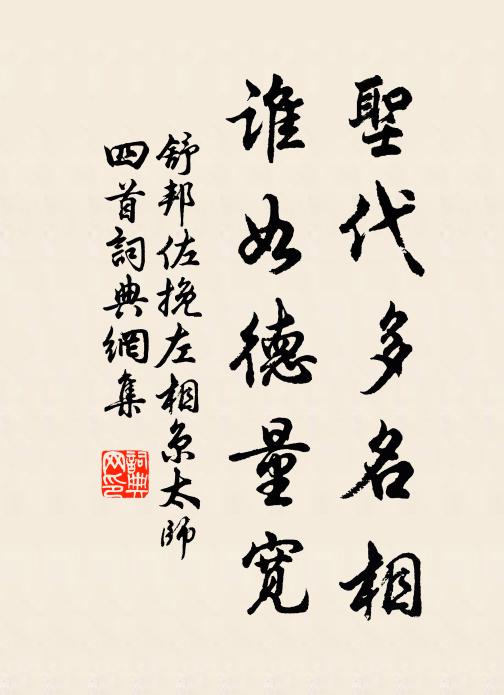 聖代多名相
谁如德量寬
舒邦佐挽左相京太師
四首詞典網集
詞典网印